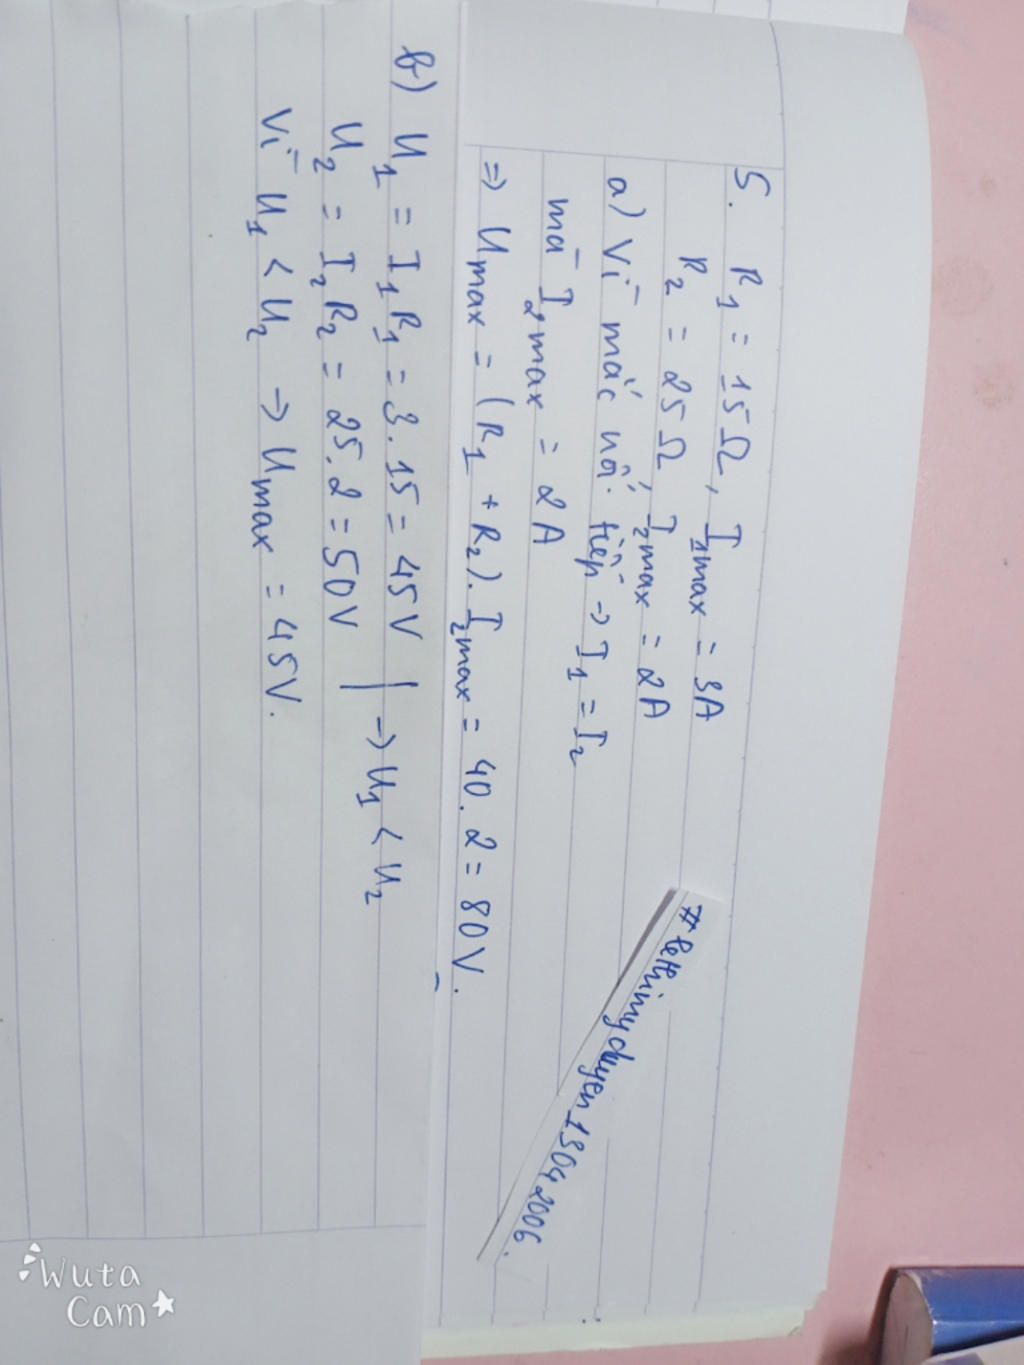 5. R₁ = 15Ω, I₁max = 3A
R₂ = 25Ω, I₂max = 2A
a) Vì mắc nối tiếp → I₁ = I₂
mà I₂max = 2A
⇒ Umax = (R₁ + R₂). I₂max = 40.2 = 80V.
b) U₁ = I₁R₁ = 3.15 = 45V
U₂ = I₂R₂ = 25.2 = 50V | → U₁ < U₂
Vì U₁ < U₂ → Umax = 45V.
#lethimyduyen19042006.
Wuta
Cam